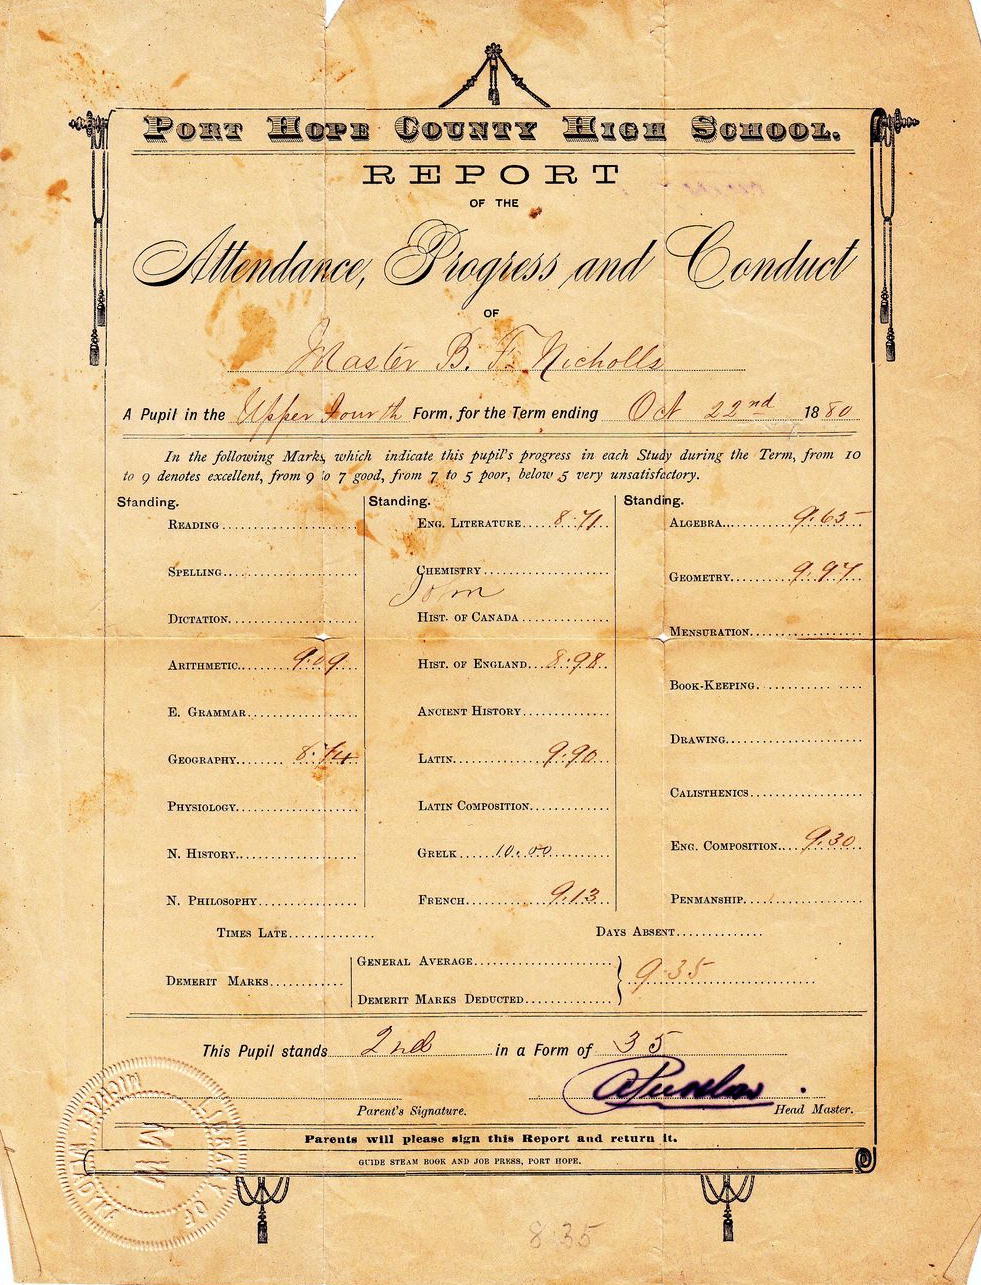 PORT HOPE COUNTY HIGH SCHOOL.
REPORT
OF THE
Attendance, Progress and Conduct
OF
Master B. F. Nicholls
A Pupil in the Upper Fourth Form, for the Term ending Oct 22nd 1880
In the following Marks, which indicate this pupil's progress in each Study during the Term, from 10
to 9 denotes excellent, from 9 to 7 good, from 7 to 5 poor, below 5 very unsatisfactory.
Standing.
READING
SPELLING
DICTATION
ARITHMETIC 9.09
E. GRAMMAR
GEOGRAPHY 8.74
PHYSIOLOGY
N. HISTORY
N. PHILOSOPHY
Standing.
ENG. LITERATURE 8.71
CHEMISTRY
HIST. OF CANADA
HIST. OF ENGLAND 8.98
ANCIENT HISTORY
LATIN 9.90
LATIN COMPOSITION
GRELK 10.00
FRENCH 9.13
Standing.
ALGEBRA 9.65
GEOMETRY 9.97
MENSURATION
BOOK-KEEPING
DRAWING
CALISTHENICS
ENG. COMPOSITION 9.30
PENMANSHIP
TIMES LATE
DAYS ABSENT
DEMERIT MARKS
GENERAL AVERAGE
DEMERIT MARKS DEDUCTED
9.35
This Pupil stands 2nd in a Form of 35
Parent's Signature.
Head Master.
Parents will please sign this Report and return it.
GUIDE STEAM BOOK AND JOB PRESS, PORT HOPE.
LIBRARY OF
MW
8.35